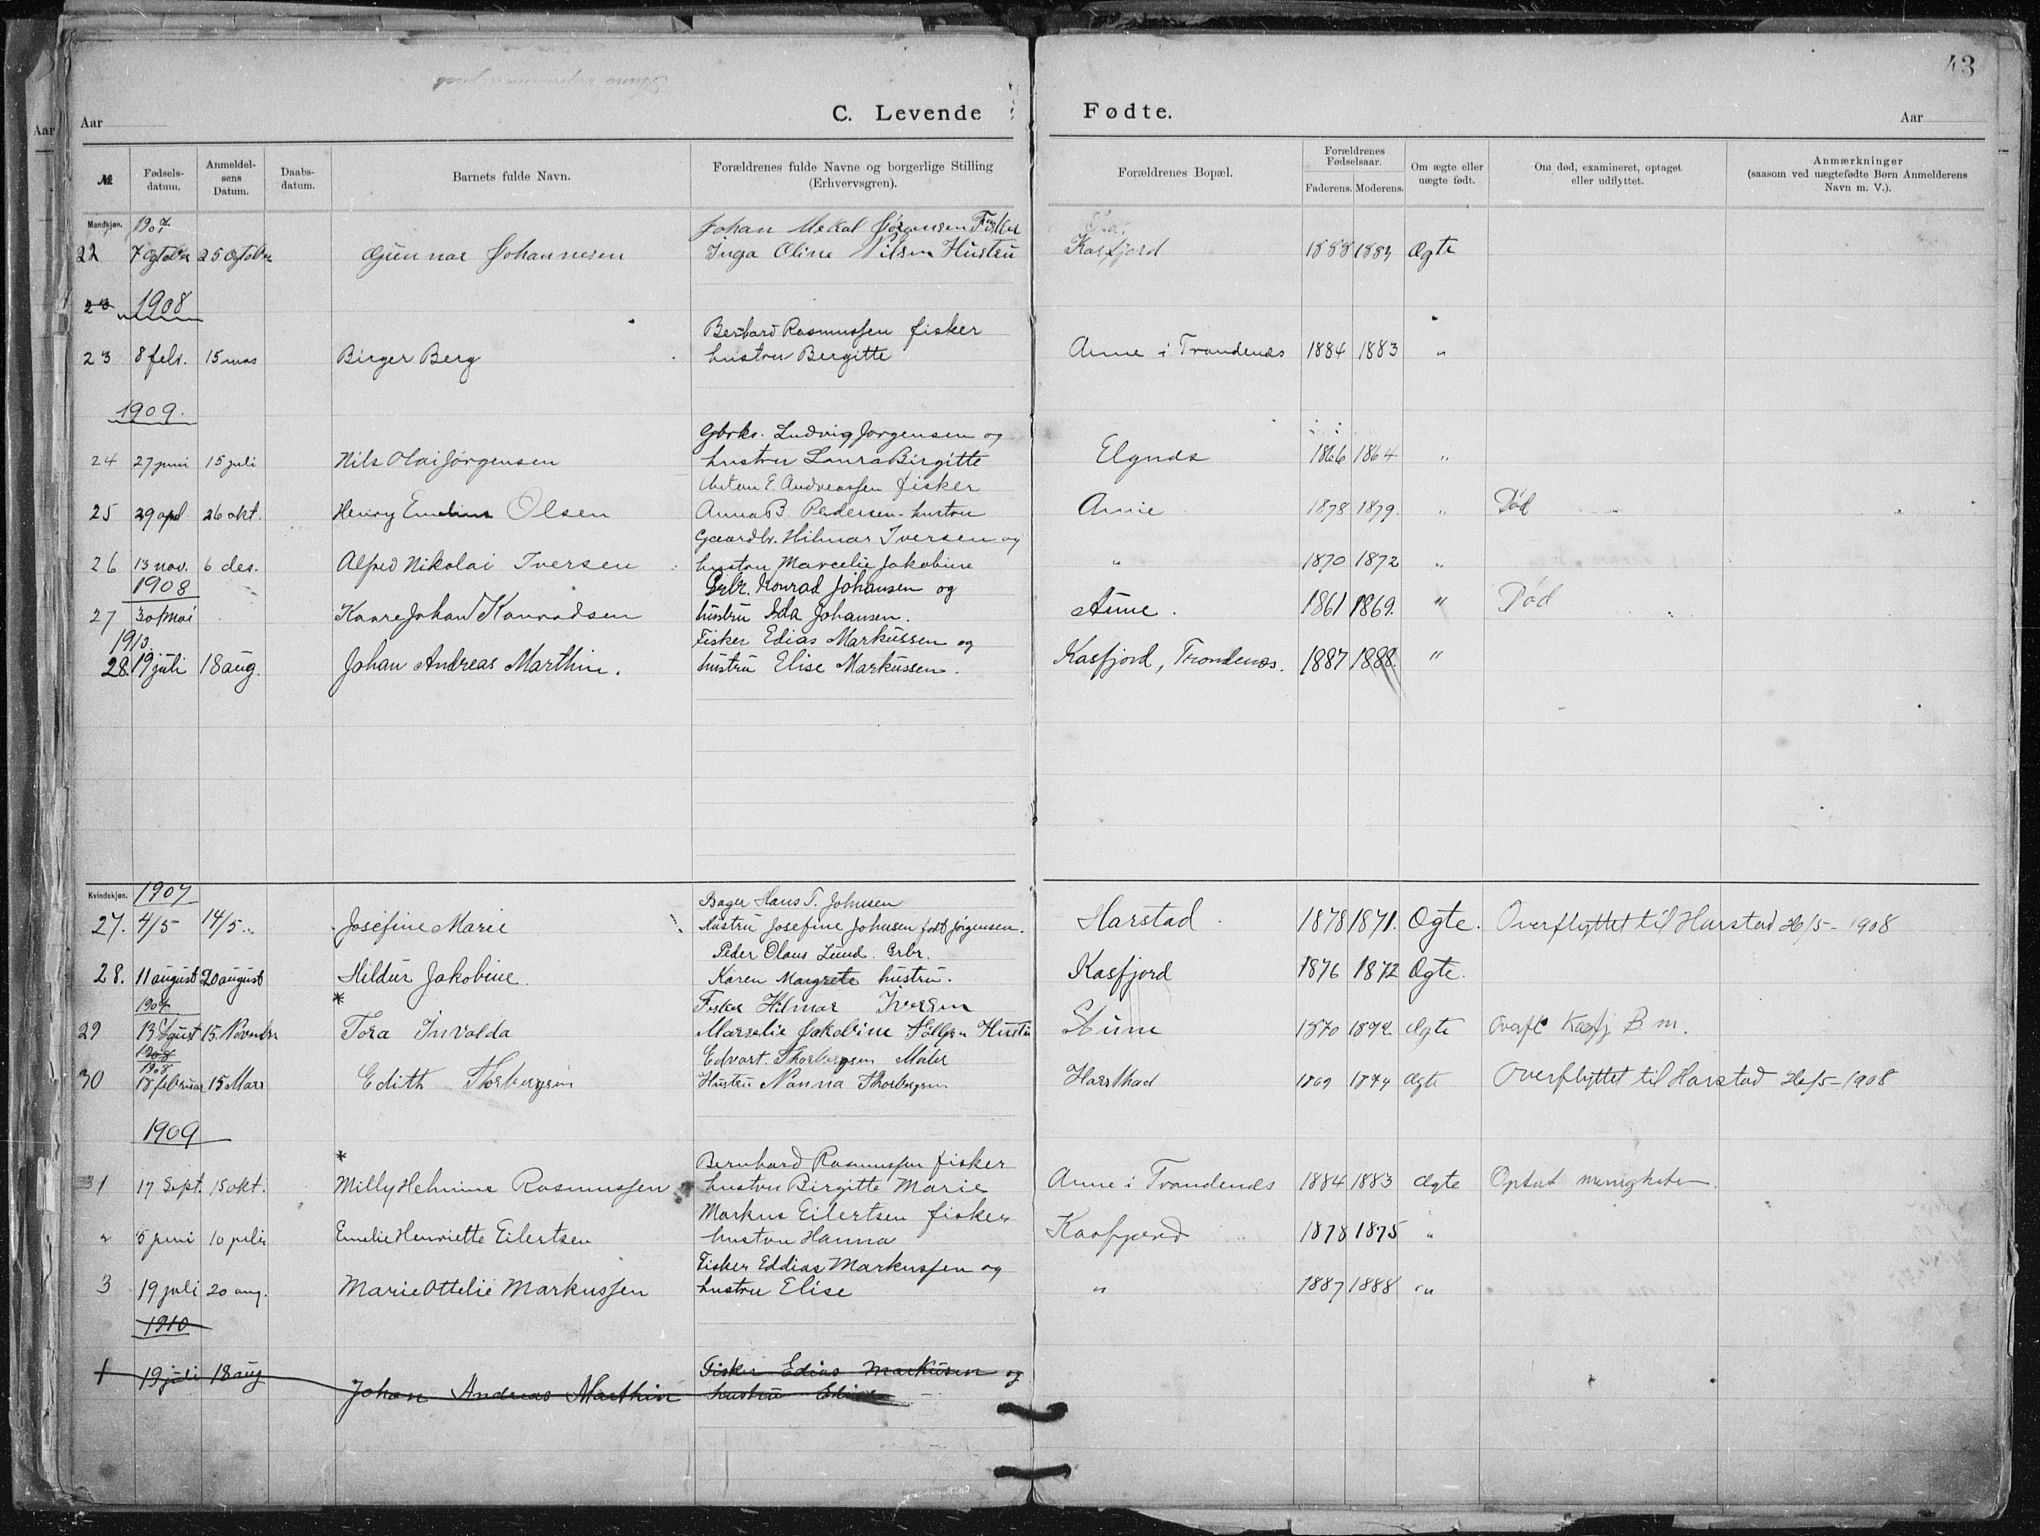 43
Aar C. Levende Fødte. Aar
№ Fødsels-datum. Anmeldel-sens Datum. Daabs-datum. Barnets fulde Navn. Forældrenes fulde Navne og borgerlige Stilling (Erhvervsgren). Forældrenes Bopæl. Forældrenes Fødselsaar. Faderens. Moderens. Om ægte eller uægte født. Om død, examineret, optaget eller udflyttet. Anmærkninger (saasom ved uægtefødte Børn Anmelderens Navn m. V.).
Mandkjøn. 1907 Johan Mekal Sørensen Fisker
22 7 October 25 October Gunnar Johannesen Inga Oline Nilsen Hustru Kasfjord 1888 1883 Ægte
23 1908
Bernhard Rasmussen fisker
23 8 febr. 15 mars Birger Berg hustru Bergitte Aune i Trondenæs 1884 1883 "
1909.
Gbrks. Ludvig Jørgensen og
24 27 juni 15 juli Nils Olai Jørgensen hustru Laura Birgitte Elgnæs 1866 1864 "
Anton E. Andreassen fisker
25 29 apl 26 okt. Henry Emelius Olsen Anna B. Pedersen hustru Aune 1878 1879. " Død
Gaardbr. Hilmar Iversen og
26 13 nov. 6 des. Alfred Nikolai Iversen hustru Marcelie Jakobine " 1870 1872 "
1908 Grbr. Konrad Johansen og
27 30 Mai Kaare Johan Konradsen hustru Ida Johansen. Aune. 1861 1869. " Død
1910. Fisker Edias Markussen og
28. 19 juli 18 aug. Johan Andreas Marthin. hustru Elise Markussen. Kasfjord, Trondenæs. 1887 1888. "
Kvindekjøn. 1907 Bager Hans T. Johnsen
27. 4/5 14/5 Josefine Marie Hustru Josefine Johnsen født Jørgensen. Harstad 1878 1871. Ægte. Overflyttet til Harstad 26/5-1908
Peder Olaus Lund. Grbr.
28. 11 august 20 august Hildur Jakobine. Karen Margrete hustru. Kasfjord 1876 1872 Ægte.
1907 * Fisker Hilmar Iversen
29 13 August 15. November Tora Invalda Marselie Jakobine Hustru Aune 1870 1872 Ægte Overfl. Kasfj B m.
1908 Edvart. Thorbergsen Maler
1908
30 18 februar 15 Mars Edith Thorbergsen Hustru Nanna Thorbergsen Harsthad 1869 1874 Ægte Overflyttet til Harstad 26/5-1908
1909
* Bernhard Rasmussen fisker
31 17 Sept. 15 okt. Milly Helmine Rasmussen hustru Birgitte Marie Aune i Trondenæs 1884 1883 Ægte Optat menigheten.
Markus Eilertsen fisker
2 5 juni 10 julie Emelie Henriette Eilertsen hustru Hanna Kasfjord 1878 1875 "
Fisker Eddias Markussen og
3 19 juli 20 aug. Marie Ottelie Markussen hustru Elise " 1887 1888 "
1910
1 19 juli 18 aug Johan Andreas Marthin Fisker Edias Markusen og
hustru